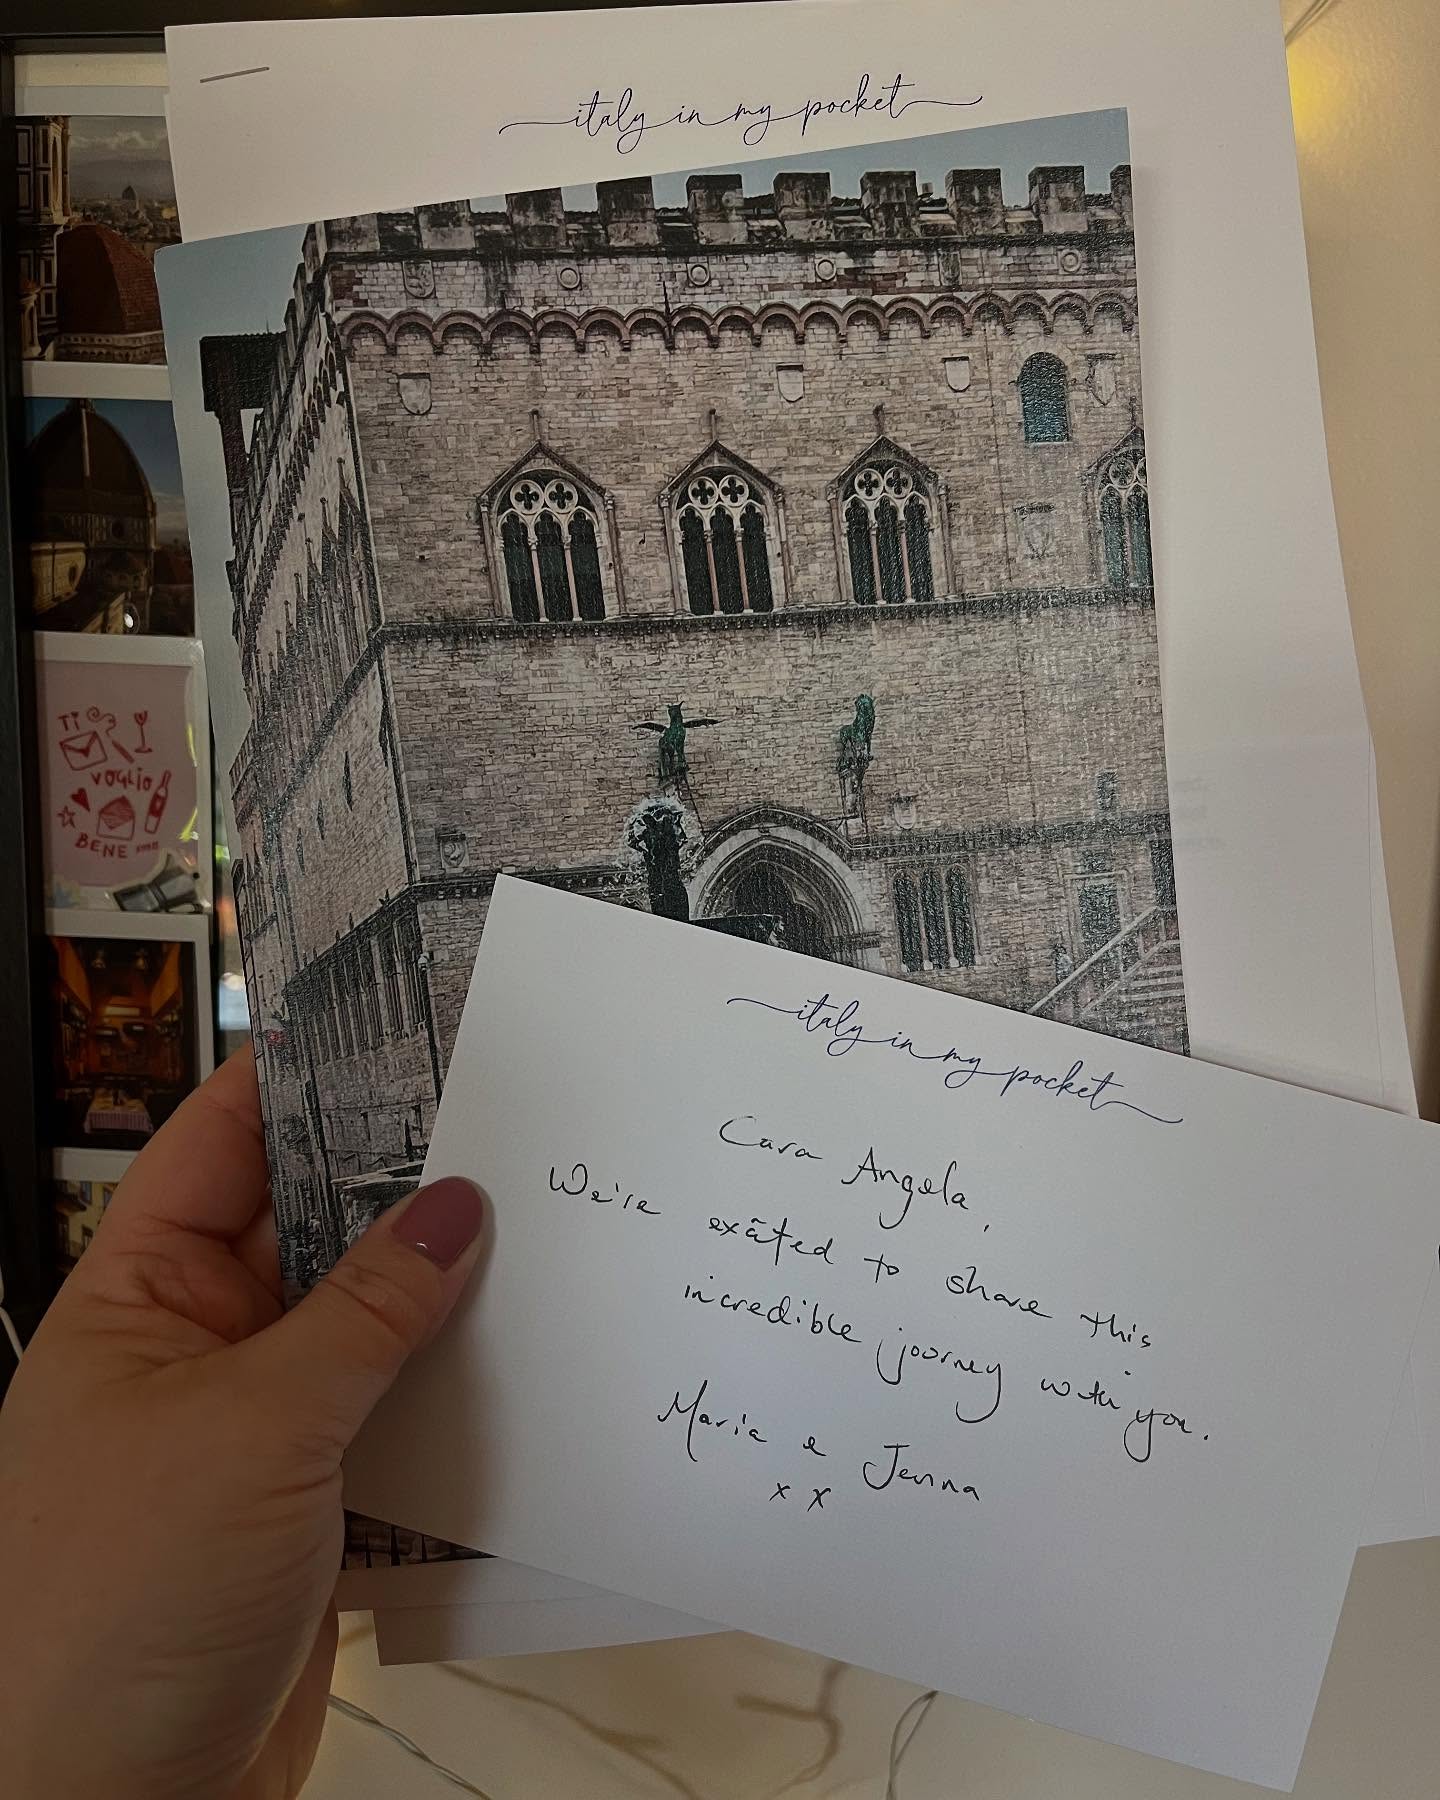 italy in my pocket
TI
VOGLIO
BENE
italy in my pocket
Cara Angela,
We're excited to share this
incredible journey with you.
Maria e Jenna
x x